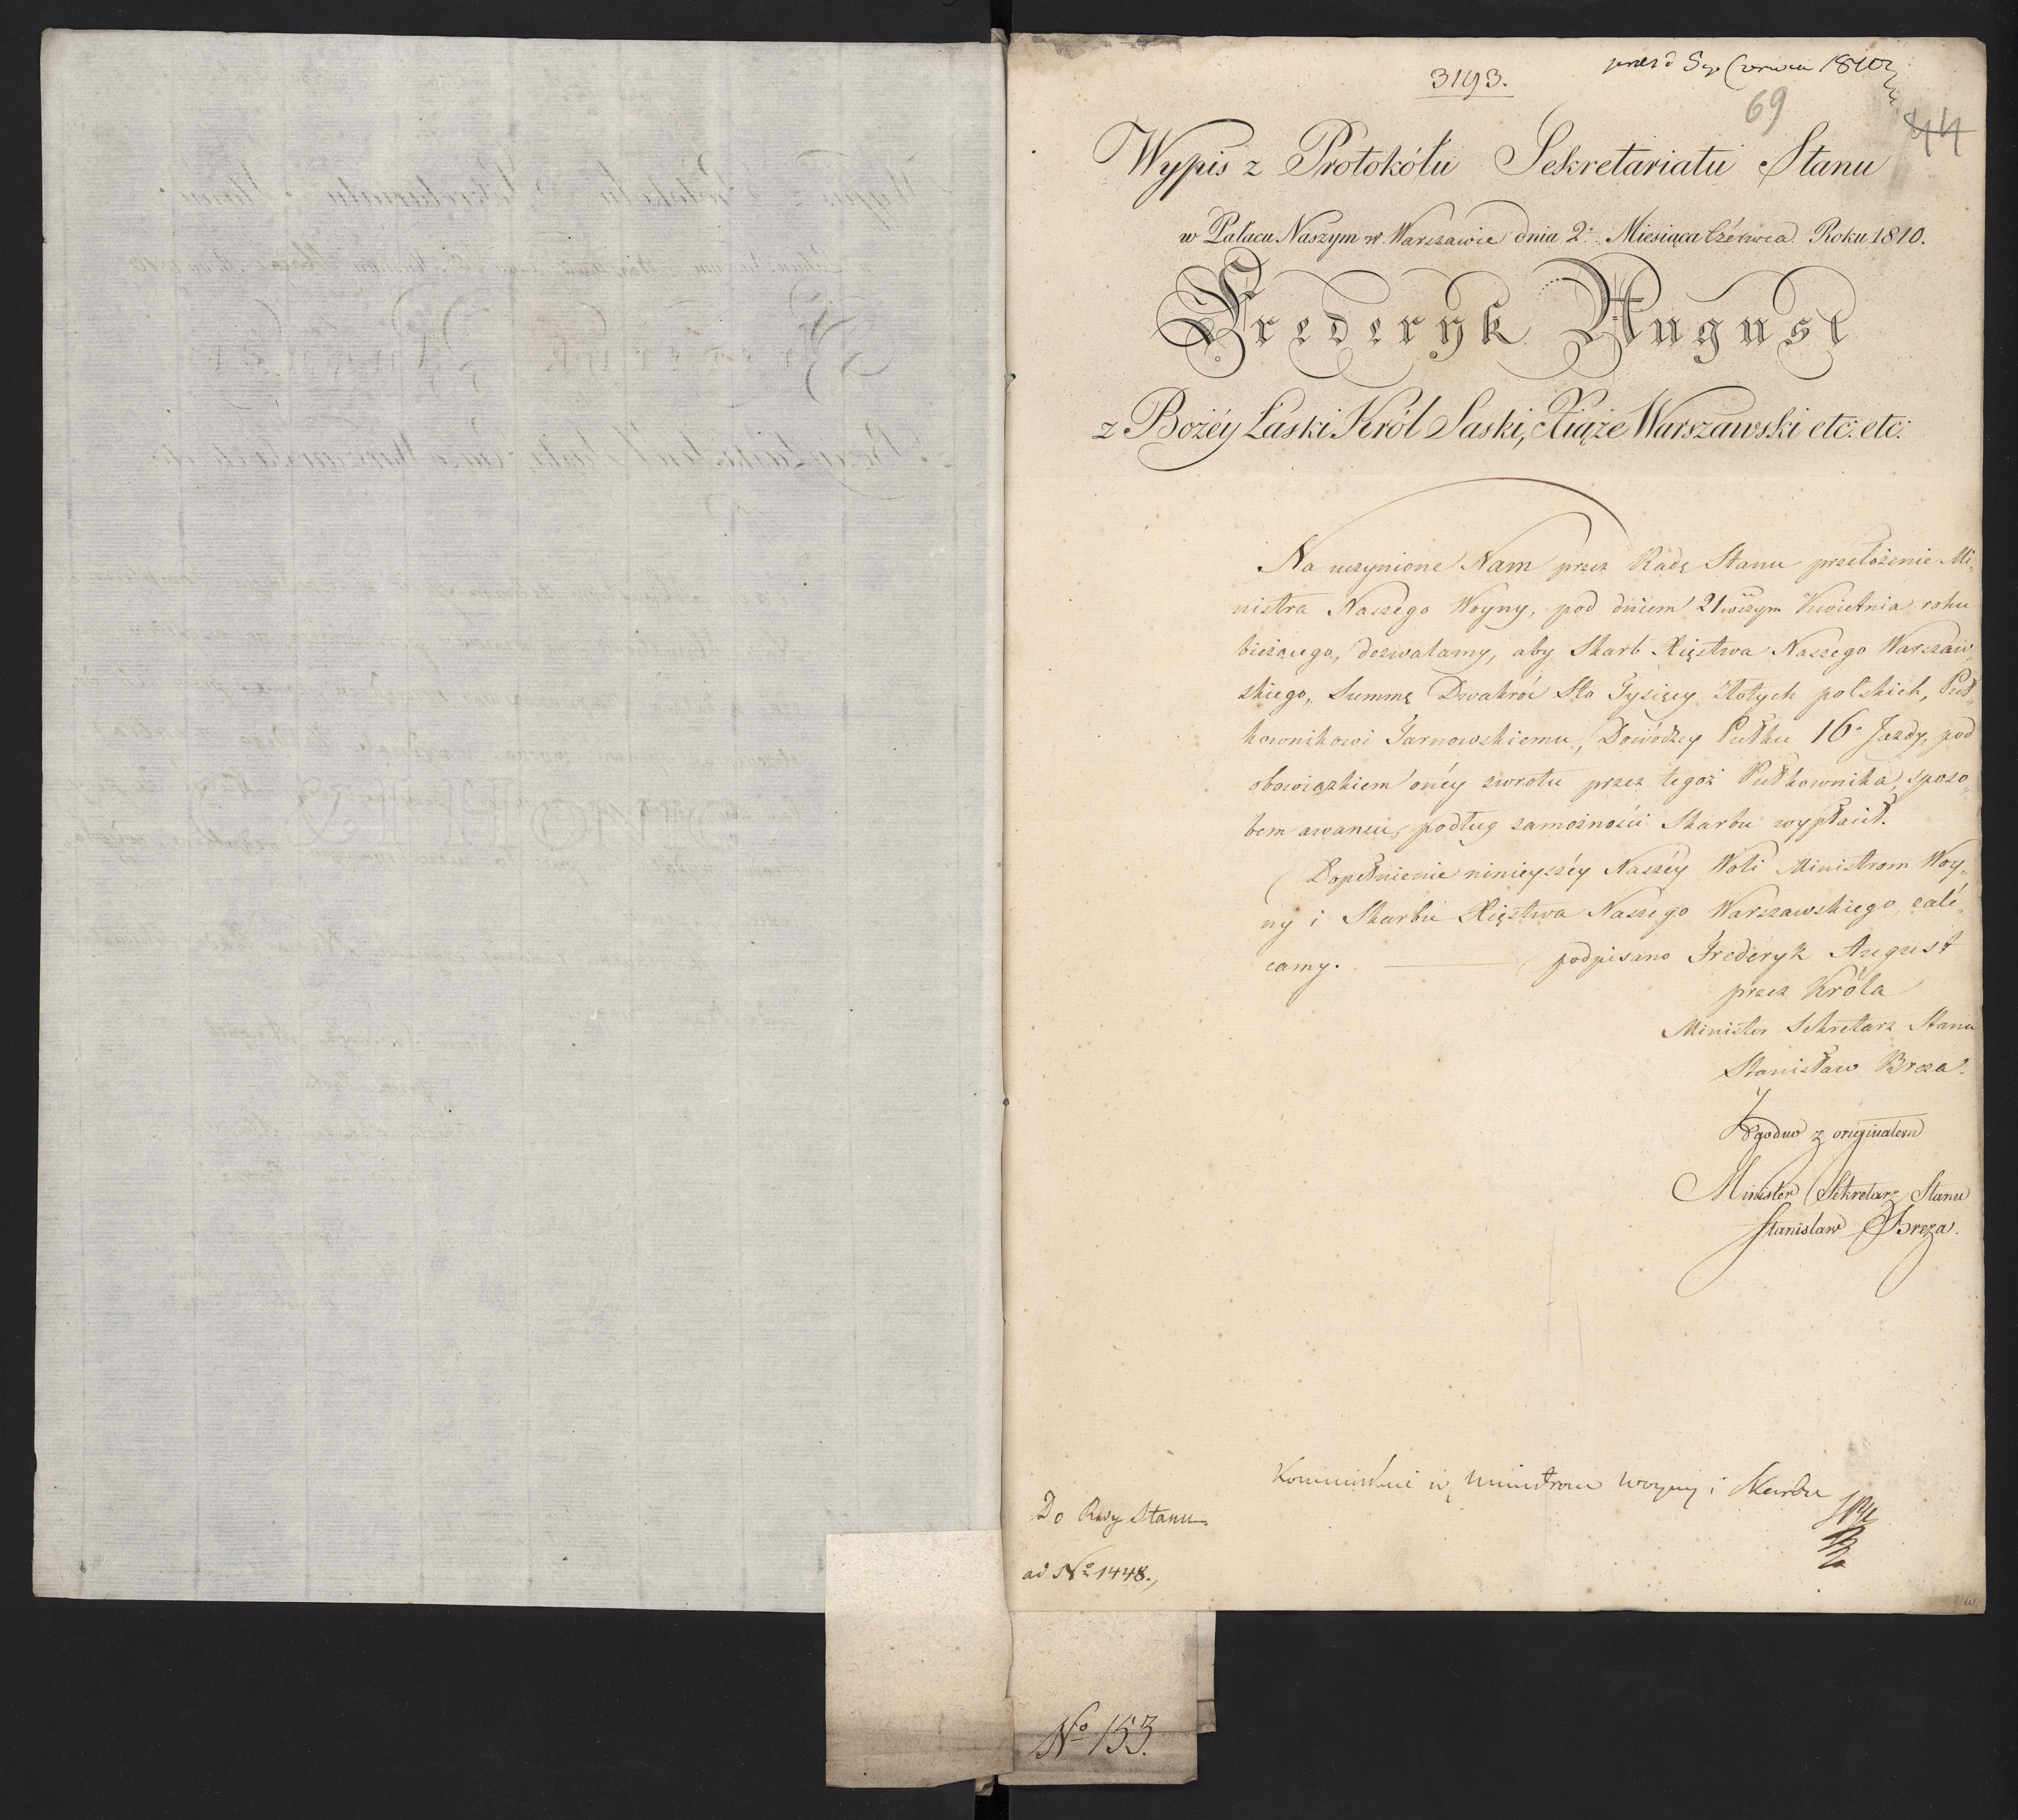 3193.
Czerwca 1810
69
44
Wypis z Protokółu Sekretariatu Stanu
w Pałacu Naszym w Warszawie dnia 2° Miesiąca Czérwca Roku 1810.
Frederyk August
z Bożéy Łaski Król Saski, Xiąże Warszawski etc: etc:
Na uczynione Nam przez Radę Stanu przełożenie Mi„
nistra Naszego Woyny, pod dniem 21wszym Kwietnia roku
bieżącego, dozwalamy, aby Skarb Xięstwa Naszego Warszaw„
skiego, Summę Dwakroć Sto Tysięcy złotych polskich, Puł„
kownikowi Tarnowskiemu, Dowódzcy Pułku 16° Jazdy, pod
obowiązkiem onéy zwrotu przez tegoż Pułkownika, sposo„
bem awansu, podług zamożności Skarbu wypłacił.
Dopełnienie ninieyszéy Naszéy Woli Ministrom Woy„
ny i Skarbu Xięstwa Naszego Warszawskiego, zale„
camy. podpisano Frederyk August
przez Króla
Minister Sekretarz Stanu
Stanisław Breza.
Zgodno z originałem
Minister Sekretarz Stanu
Stanisław Breza.
Ministrom Woyny i Skarbu
Do Rady Stanu.
ad No 1448.,
No 153.